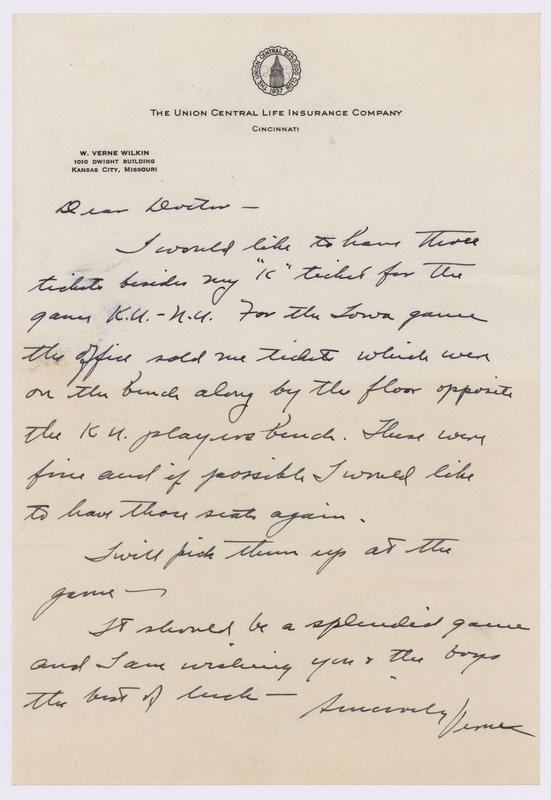 THE UNION CENTRAL $500,000 CLUB
1937
THE UNION CENTRAL LIFE INSURANCE COMPANY
CINCINNATI
W. VERNE WILKIN
1010 DWIGHT BUILDING
KANSAS CITY, MISSOURI
Dear Doctor –
I would like to have three
tickets besides my "K" ticket for the
game K.U.-N.U. For the Iowa game
the office sold me tickets which were
on the bench along by the floor opposite
the K U. players bench. These were
fine and if possible I would like
to have those seats again.
I will pick them up at the
game —
It should be a splendid game
and I am wishing you & the boys
the best of luck —
Sincerely Verne